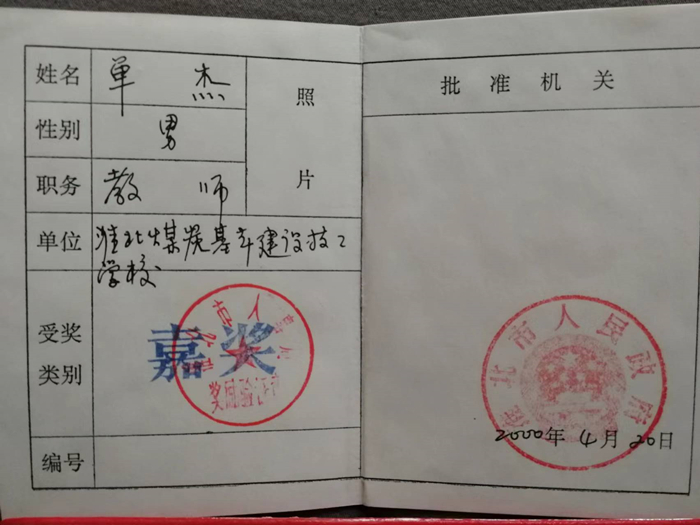 姓名 单 杰
照
性别 男
职务 教 师
片
单位 淮北煤炭基本建设技工
学校
受奖
类别
嘉奖
编号
批 准 机 关
淮北市人民政府
2000年 4 月 20日